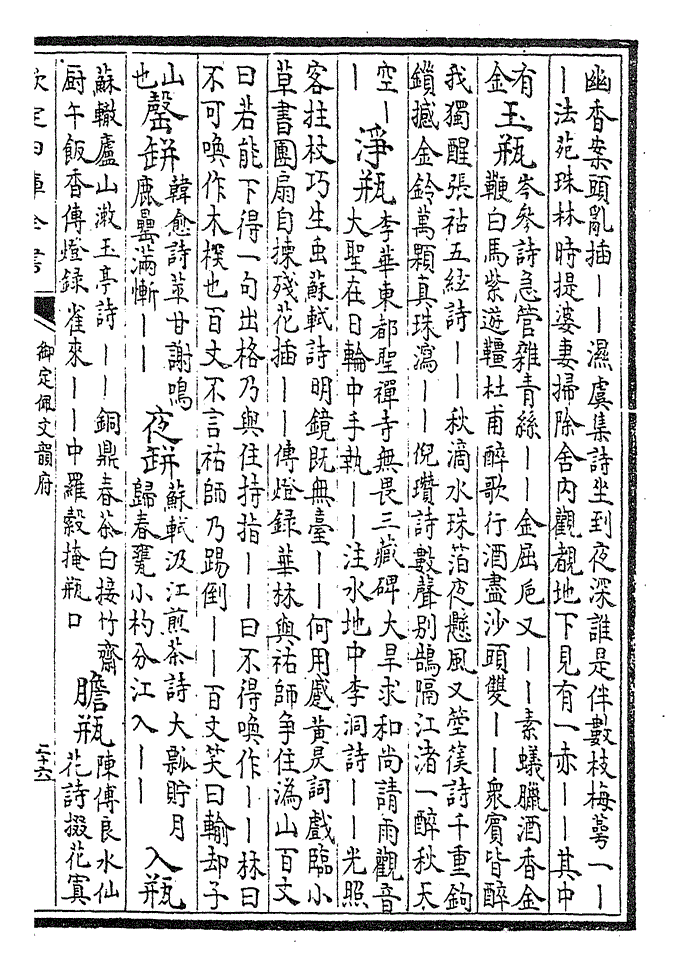 幽香案頭亂插丨丨濕虞集詩坐到夜深誰是伴數枝梅萼一丨
丨法苑珠林時提婆妻掃除舍内觀覩地下見有一赤丨丨其中
有
金
玉瓶
岑參詩急管雜青絲丨丨金屈卮又丨丨素蟻臘酒香金
鞭白馬紫遊韁杜甫醉歌行酒盡沙頭雙丨丨衆賓皆醉
我獨醒張祜五絃詩丨丨秋滴水珠箔夜懸風又箜篌詩千重鉤
鎖撼金鈴萬顆真珠瀉丨丨倪瓚詩數聲别鵠隔江渚一醉秋天
空丨
丨
淨瓶
李華東都聖禪寺無畏三藏碑大旱求和尚請雨觀音
大聖在日輪中手執丨丨注水地中李洞詩丨丨光照
客拄杖巧生虫蘇軾詩明鏡既無臺丨丨何用蹙黄昃詞戲臨小
草書團扇自揀殘花插丨丨傳燈錄華林與祐師争住溈山百丈
曰若能下得一句出格乃與住持指丨丨曰不得喚作丨丨林曰
不可喚作木也百丈不言祐師乃踢倒丨丨百丈笑曰輸却子
山
也
罄缾
韓愈詩葷甘謝鳴
鹿罍滿慚丨丨
夜缾
蘇軾汲江煎茶詩大瓢貯月
歸春甕小杓分江入丨丨
入瓶
蘇轍廬山漱玉亭詩丨丨銅鼎春茶白接竹齋
厨午飯香傳燈錄雀來丨丨中羅縠掩瓶口
膽瓶
陳傅良水仙
花詩掇花寘
欽定四庫全書
御定佩文韻府
二十六